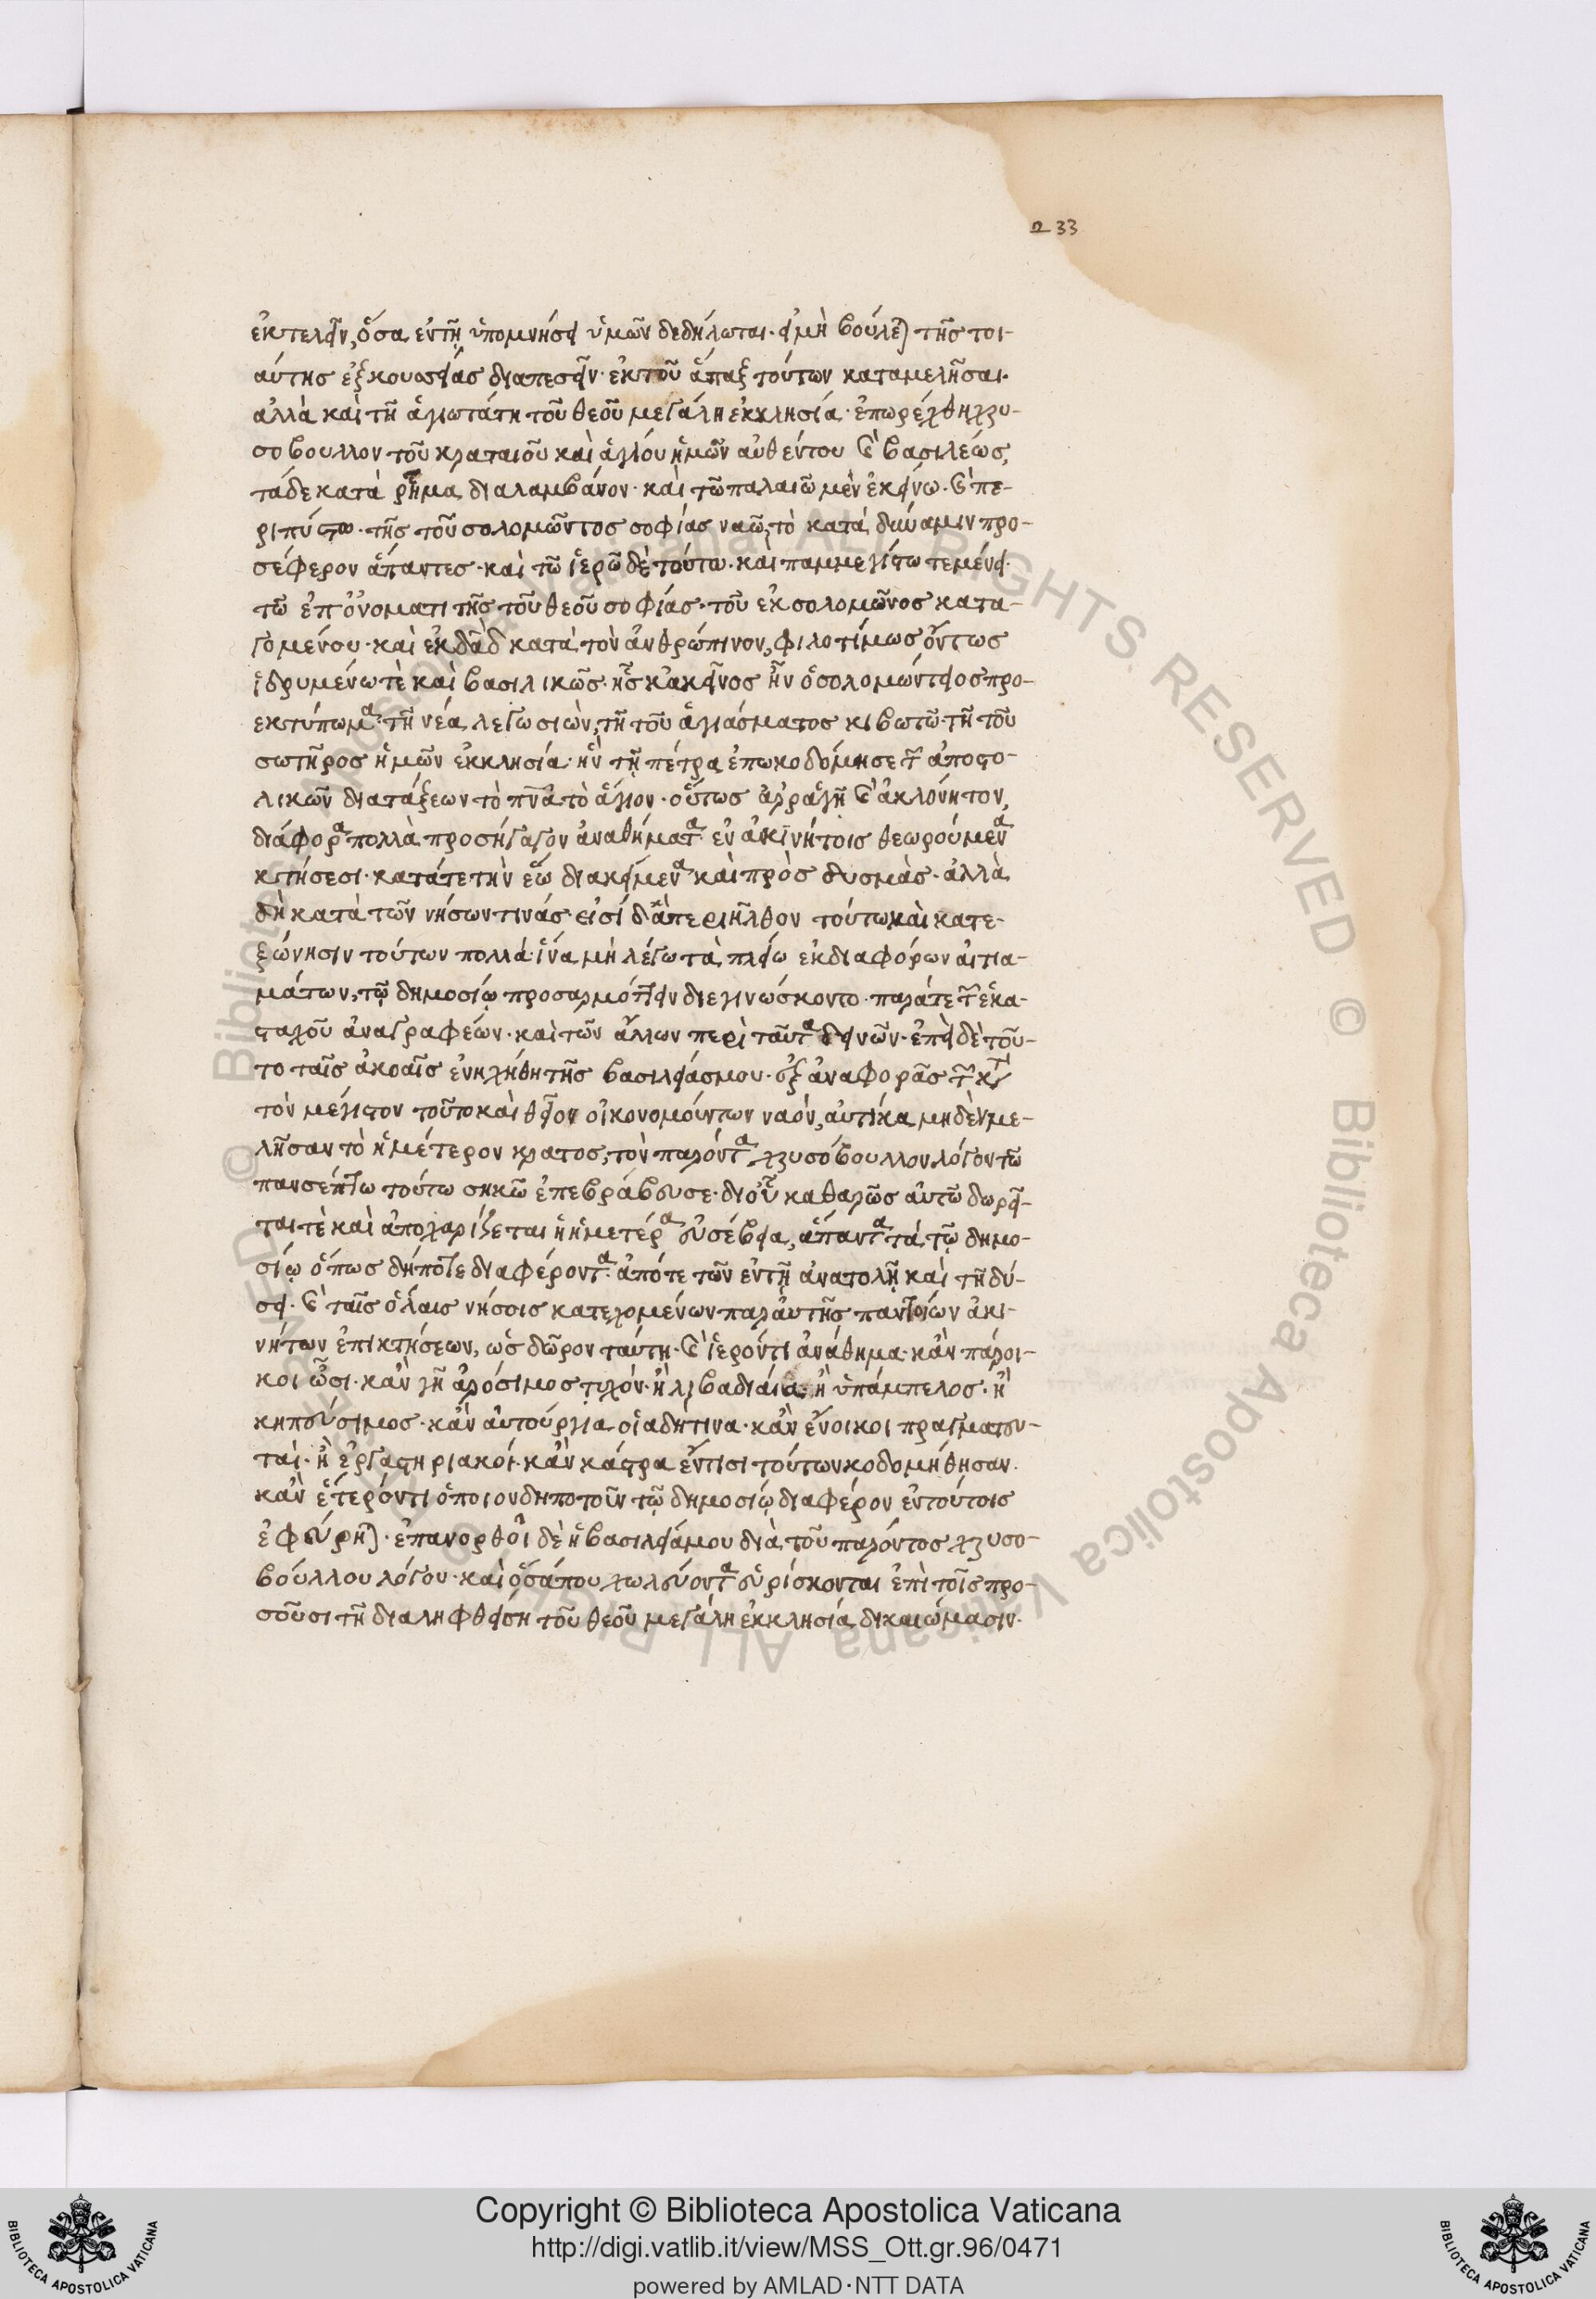 233
ἐκτελεῖν, ὅσα ἐν τῇ ὑπομνήσει ὑμῶν δεδήλωται· εἰ μὴ βούλεται τῆς τοι-
αύτης ἐξκουσείας διαπεσεῖν· ἐκ τοῦ ἅπαξ τούτων καταμελῆσαι.
ἀλλὰ καὶ τῆ ἁγιωτάτη τοῦ θεοῦ μεγάλη ἐκκλησία· ἐπωρέχθη χρυ-
σόβουλλον τοῦ κραταιοῦ καὶ ἁγίου ἡμῶν αὐθέντου καὶ βασιλέως,
τάδε κατὰ ῥῆμα διαλαμβάνον· καὶ τῶ παλαιῶ μὲν ἐκείνω· καὶ πε-
ριπύστω· τῆς τοῦ σολομῶντος σοφίας ναῶ, τὸ κατὰ δύναμιν προ-
σέφερον ἅπαντες· καὶ τῶ ἱερῶ δὲ τούτω· καὶ παμμεγίστω τεμένει·
τῶ ἐπ' ὀνόματι τῆς τοῦ θεοῦ σοφίας· τοῦ ἐκ σολομῶνος κατα-
γομένου· καὶ ἐκ δαδ κατὰ τὸν ἀνθρώπινον, φιλοτίμως ὄντως
ἱδρυμένω τὲ καὶ βασιλικῶς· ἧς κἀκεῖνος ἦν ὁ σολομώντειος προ-
εκτύπωμα· τῆ νέα λέγω σιὼν, τῆ τοῦ ἁγιάσματος κιβωτῶ· τῆ τοῦ
σωτῆρος ἡμῶν ἐκκλησία· ἣν τῇ πέτρα ἐπωκοδόμησε τῶν ἀποστο-
λικῶν διατάξεων τὸ πνα τὸ ἅγιον· οὕτως ἀρραγῆ καὶ ἀκλόνητον,
διάφορα πολλὰ προσήγαγον ἀναθήματα· ἐν ἀκινήτοις θεωρούμενα
κτήσεσι· κατά τε τὴν ἕω διακείμενα καὶ πρὸς δυσμὰς· ἀλλὰ
δὴ κατὰ τῶν νήσων τινάς· εἰσί δ' ἃ περιῆλθον τούτω καὶ κατ' ἐ-
ξώνησιν τούτων πολλά· ἵνα μὴ λέγω τὰ πλείω ἐκ διαφόρων αἰτια-
μάτων, τῷ δημοσίῳ προσαρμόττειν διεγινώσκοντο· παρά τε τῶν ἑκα-
σταχοῦ ἀναγραφέων· καὶ τῶν ἄλλων περὶ ταῦτα δεινῶν· ἐπεὶ δὲ τοῦ-
το ταῖς ἀκοαῖς ἐνηχήθη τῆς βασιλείας μου· ἐξ ἀναφορᾶς τῶν κατὰ
τὸν μέγιστον τοῦτο καὶ θεῖον οἰκονομούντων ναόν, αὐτίκα μηδὲν με-
λῆσαν τὸ ἡμέτερον κρατος, τὸν παρόντα χρυσόβουλλον λόγον τῶ
πανσέπτω τούτω σηκῶ ἐπεβράβευσε· δι' οὗ καθαρῶς αὐτῶ δωρεῖ-
ται τὲ καὶ ἀποχαρίζεται ἡ ἡμετέρα εὐσέβεια, ἅπαντα τά τῷ δημο-
σίῳ ὅπως δήποτε διαφέροντα· ἀπό τε τῶν ἐν τῇ ἀνατολῇ καὶ τῆ δύ-
σει· καὶ ταῖς ὅλαις νήσοις κατεχομένων παρ' αὐτῆς παντοίων ἀκι-
νήτων ἐπικτήσεων, ὡς δῶρον ταύτη· καὶ ἱερόν τι ἀνάθημα· κἂν πάροι-
κοι ὦσι· κἂν γῆ ἀρόσιμος τυχόν· ἢ λιβαδιαία· ἢ ὑπάμπελος· ἢ
κηπεύσιμος· κἂν αὐτούργια οἱαδήτινα· κἂν ἔνοικοι πραγματευ-
ταί· ἢ ἐργαστηριακοί· κἂν κάστρα ἔν τισι τούτων κοδομήθησαν.
κἂν ἕτερόν τι ὁποιονδηποτοῦν τῷ δημοσίῳ διαφέρον ἐν τούτοις
ἐφεύρηται· ἐπανορθοῖ δὲ ἡ βασιλεία μου διὰ τοῦ παρόντος χρυσο-
βούλλου λόγου· καὶ ὅσά που χωλεύοντα εὑρίσκονται ἐπὶ τοῖς προ-
σοῦσι τῆ διαληφθείση τοῦ θεοῦ μεγάλη ἐκκλησία δικαιώμασιν·
Copyright © Biblioteca Apostolica Vaticana
http://digi.vatlib.it/view/MSS_Ott.gr.96/0471
powered by AMLAD·NTT DATA
BIBLIOTECA APOSTOLICA VATICANA
BIBLIOTECA APOSTOLICA VATICANA
© Biblioteca Apostolica Vaticana ALL RIGHTS RESERVED © Biblioteca Apostolica Vaticana ALL RIGHTS RESERVED